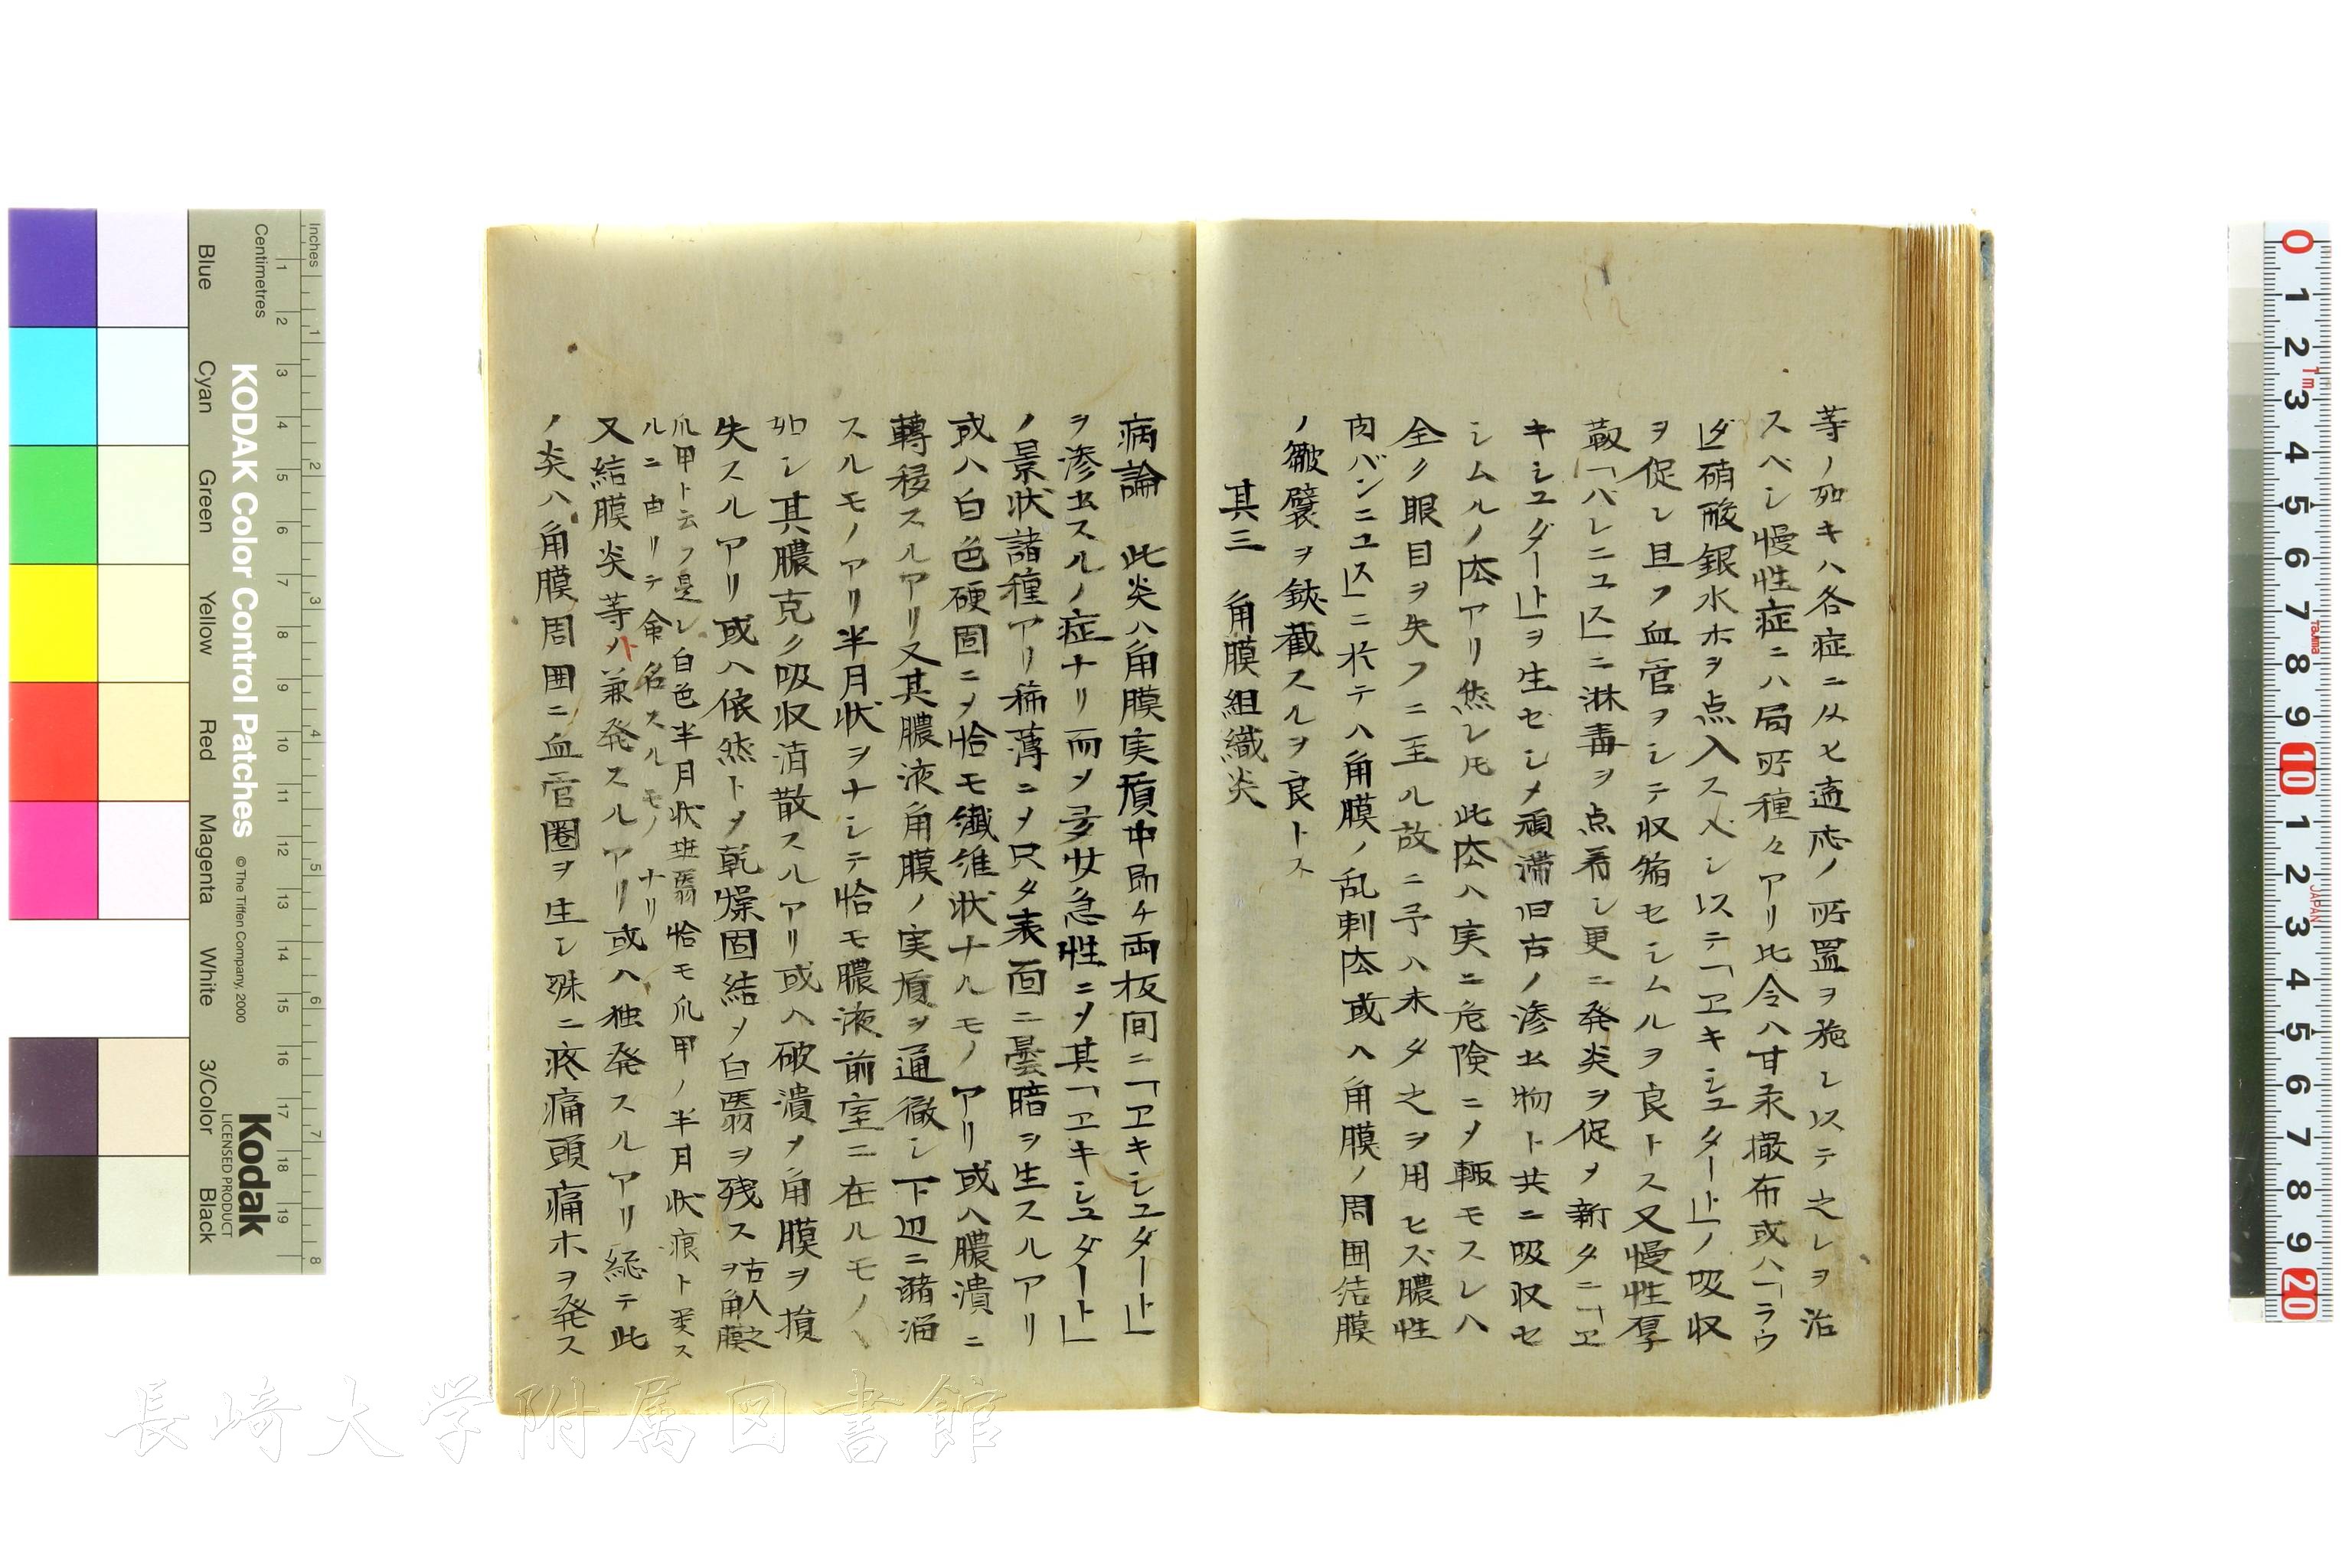 等ノ如キハ各症ニ从ヒ適応ノ所置ヲ施シ以テ之レヲ治
スベシ慢性症ニハ局所種々アリ比令ハ甘汞撒布或ハ「ラウ
ダ」硝酸銀水ホヲ点入スベシ以テ「ヱキシユダート」ノ吸収
ヲ促シ且フ血管ヲシテ収縮セシムルヲ良トス又慢性厚
「パンニユス」ニ淋毒ヲ点着シ更ニ発炎ヲ促メ新タニ「ヱ
キシユダート」ヲ生セシメ頑滞旧古ノ滲出物ト共ニ吸収セ
シムルノ法アリ然レ𪜈此法ハ実ニ危険ニメ輙モスレハ
全ク眼目ヲ失フニ至ル故ニ予ハ未タ之ヲ用ヒズ膿性
肉パンニユス」ニ於テハ角膜ノ乱刺法或ハ角膜ノ周囲結膜
ノ皺襞ヲ鋏截スルヲ良トス
其三 角膜組織炎
病論 此炎ハ角膜実質中即チ両板间ニ「ヱキシユダート」
ヲ滲出スルノ症ナリ而メ多少急性ニメ其「ヱキシユダート」
ノ景状諸種アリ稀薄ニメ只タ表面ニ曇暗ヲ生スルアリ
或ハ白色硬固ニメ恰モ纎維状ナルモノアリ或ハ膿潰ニ
轉移スルアリ又其膿液角膜ノ実質ヲ通徹シ下辺ニ瀦溜
スルモノアリ半月状ヲナシテ恰モ膿液前室ニ在ルモノヽ
如シ其膿克ク吸収消散スルアリ或ハ破潰メ角膜ヲ損
失スルアリ或ハ依然トメ乾燥固結メ白翳ヲ残ス古人之ヲ角膜
爪甲ト云フ是レ白色半月状班翳恰モ爪甲ノ半月状痕ト類ス
ルニ由リテ命名スルモノナリ
又結膜炎等ト兼発スルアリ或ハ独発スルアリ総テ此
ノ炎ハ角膜周囲ニ血管圏ヲ生シ殊ニ疼痛頭痛ホヲ発ス
長崎大学附属図書館
KODAK Color Control Patches
© The Tiffen Company, 2000
Kodak
LICENSED PRODUCT
Inches
Centimetres
Blue
Cyan
Green
Yellow
Red
Magenta
White
3/Color
Black
1 2 3 4 5 6 7 8
1 2 3 4 5 6 7 8 9 10 11 12 13 14 15 16 17 18 19
0 1 2 3 4 5 6 7 8 9 10 1 2 3 4 5 6 7 8 9 20
1m
TaJima
JAPAN